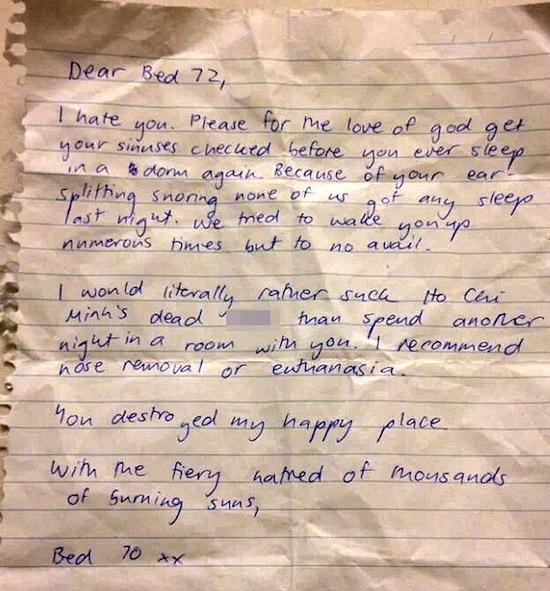 Dear Bed 72,
I hate you. Please for the love of god get
your sinuses checked before you ever sleep
in a dorm again. Because of your ear-
splitting snoring none of us got any sleep
last night. We tried to wake you up
numerous times but to no avail.
I would literally rather suck Ho Chi
Minh's dead than spend another
night in a room with you. I recommend
nose removal or euthanasia.
You destroyed my happy place
With the fiery hatred of thousands
of burning suns,
Bed 70 xx